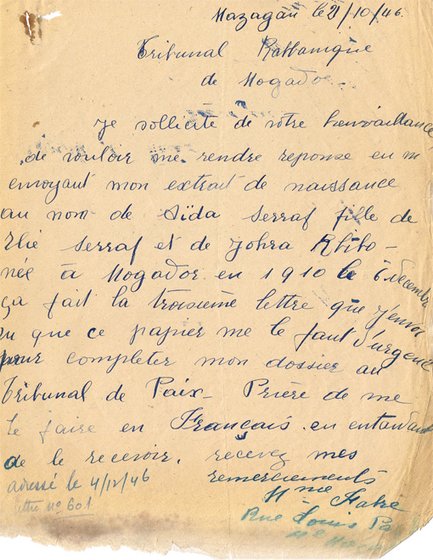 Mazagan le 21/10/46.
Tribunal Rabbanique
de Mogador
Je sollicite de votre bienvaillance,
de vouloir me rendre reponse en m
envoyant mon extrait de naissance
au nom de Sïda Serraf fille de
Elie Serraf et de Johra Abibo -
née à Mogador en 1910 le 6 décembre
ça fait la troisième lettre que j'envoi
vu que ce papier me le faut d'urgence
pour completer mon dossier au
Tribunal de Paix - Prière de me
le faire en Français en entandant
de le recevoir, recevez mes
remerciements
adressé le 4/12/46
lettre No 601
Mme
Rue Louis